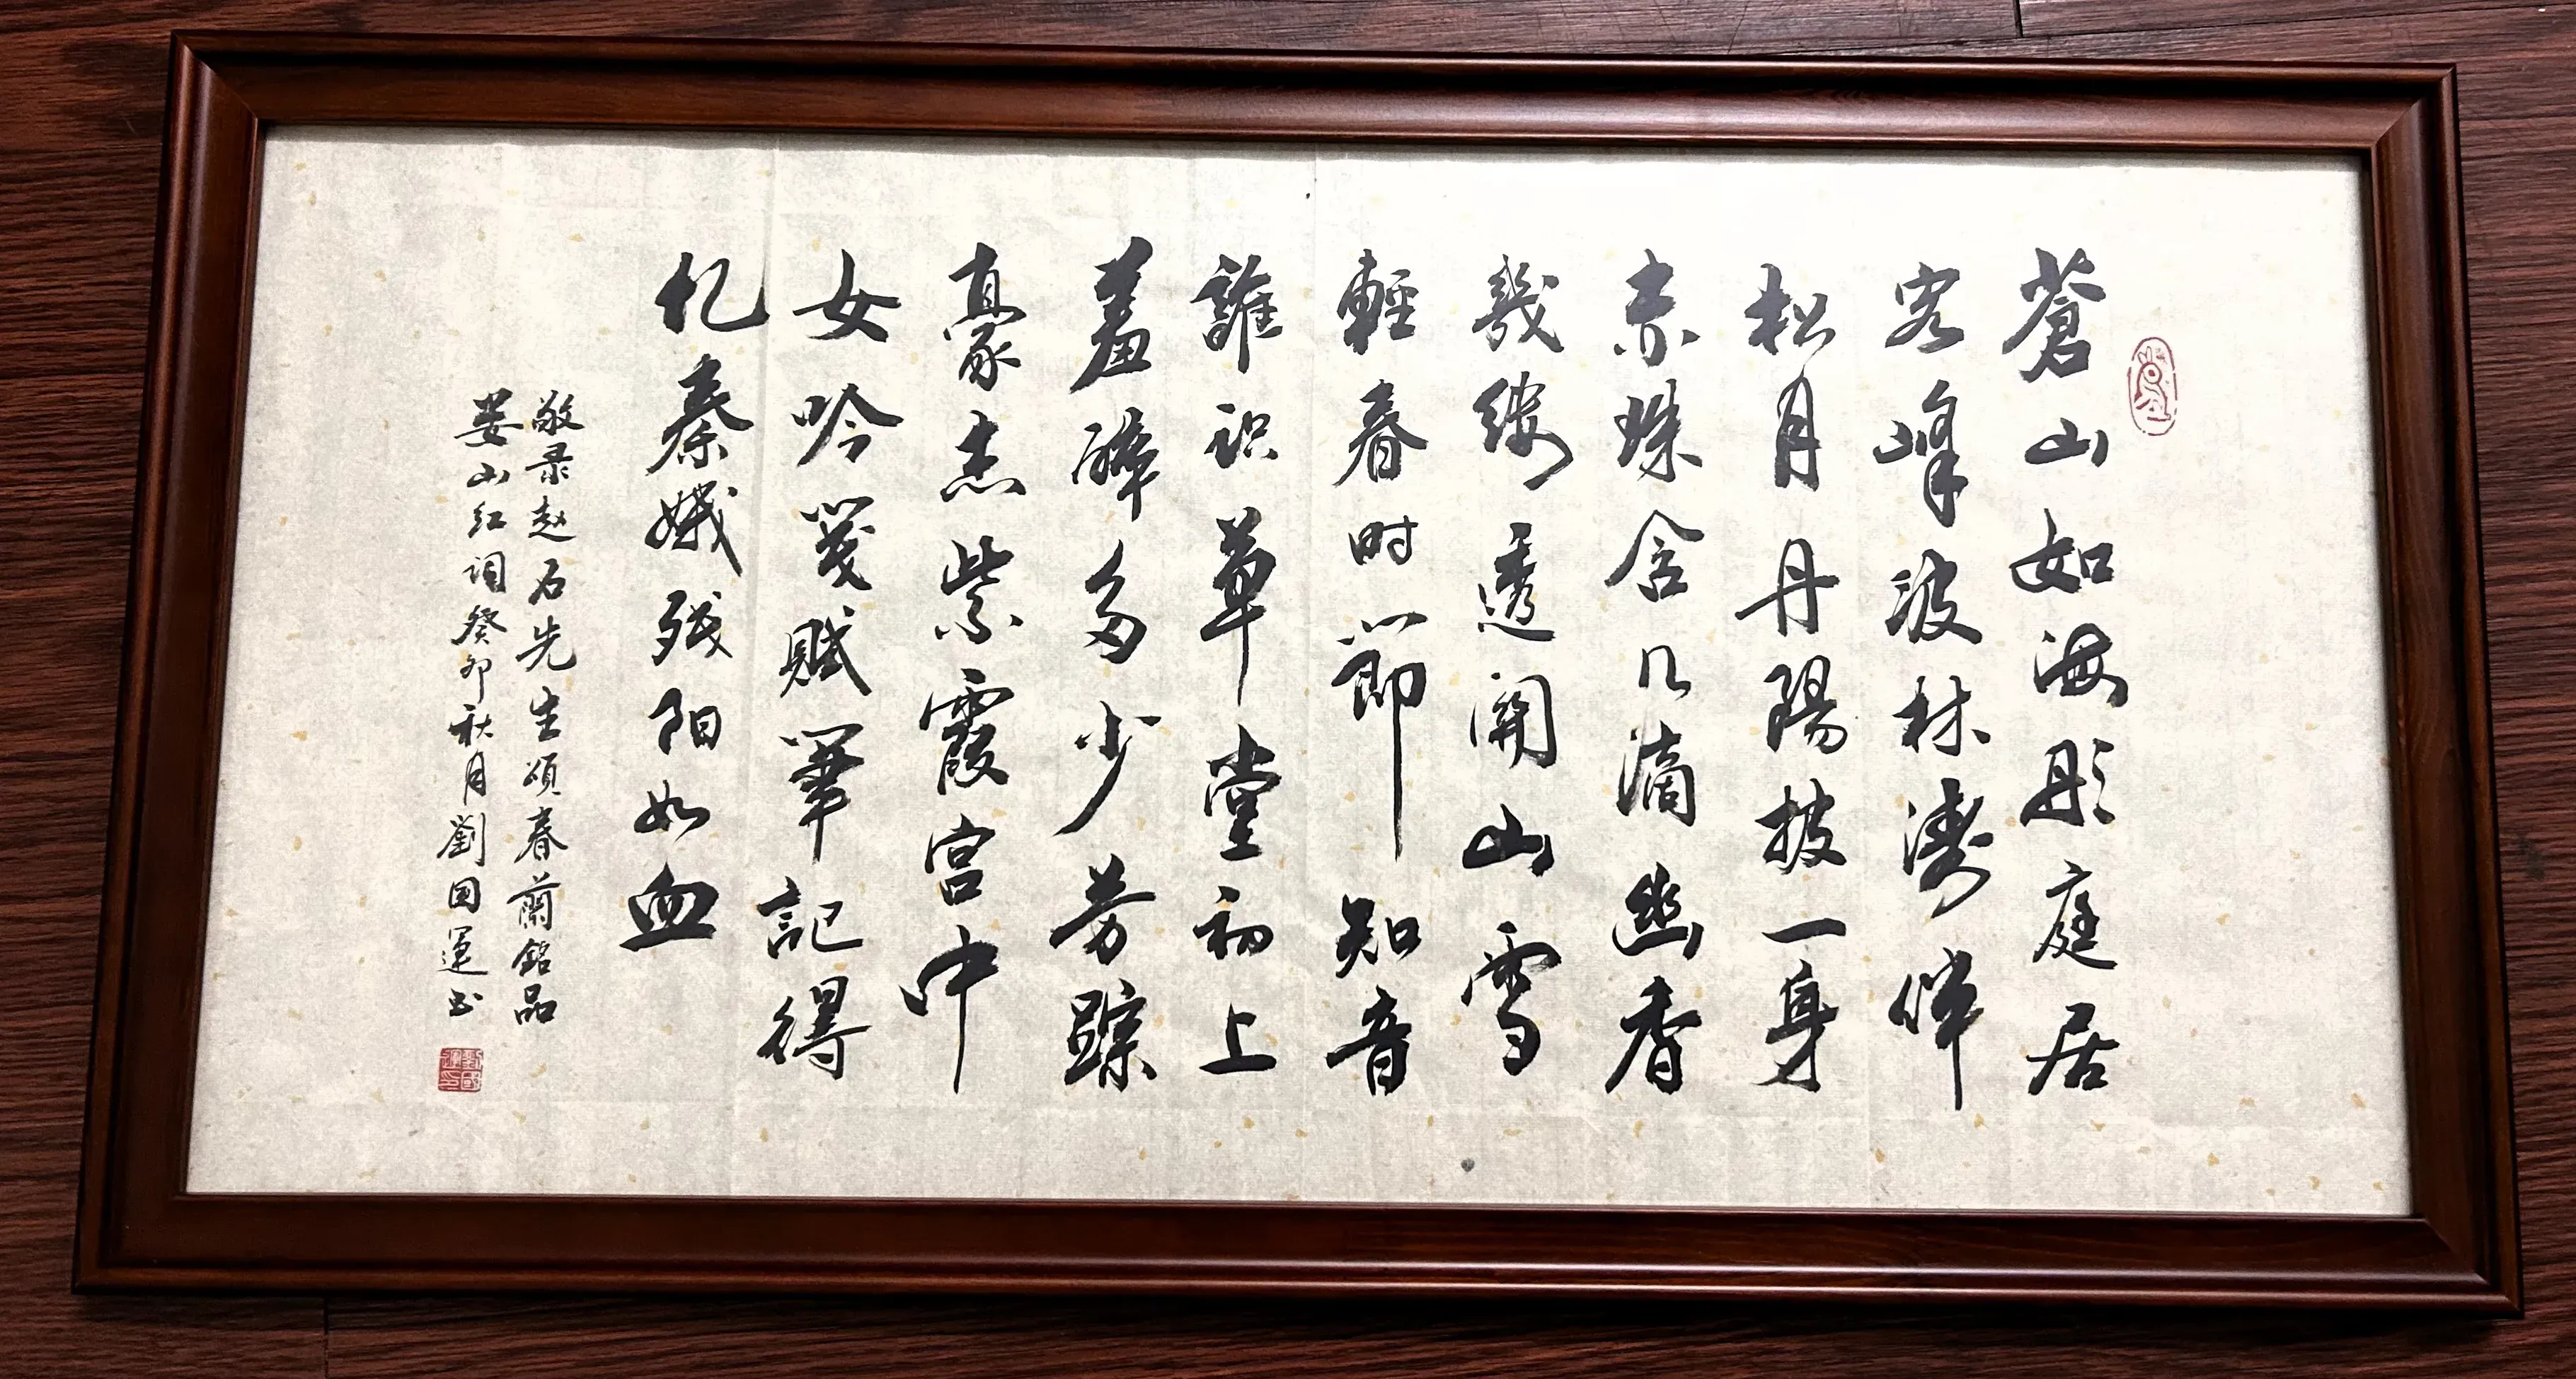 蒼山如海彤庭居
客峰波林濤伴
松月丹陽披一身
赤珠含几滴幽香
幾縷透關山雪
輕春時節知音
誰识草堂初上
羞醉多少芳踪
豪杰紫霞宫中
女吟箋賦筆記得
忆秦娥残阳如血
敬录赵石先生颂春蘭銘品
娄山红词癸卯秋月劉国運书